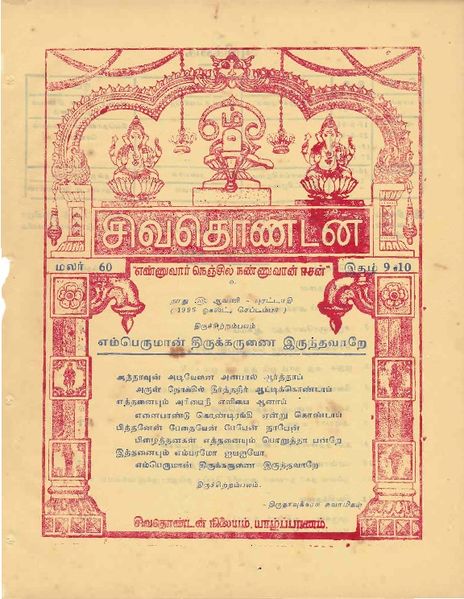 சிவதொண்டன்
மலர் 60 "எண்ணுவார் நெஞ்சில் நண்ணுவான் ஈசன்" இதழ் 9•10
ஆவணி - புரட்டாதி
(1995 ஓகஸ்ட், செப்டம்பர்)
திருச்சிற்றம்பலம்
எம்பெருமான் திருக்கருணை இருந்தவாறே
அத்தாவுன் அடியேனை அன்பால் ஆர்த்தாய்
அருள் நோக்கில் தீர்த்தநீர் ஆட்டிக்கொண்டாய்
எத்தனையும் அரியைநீ எளியை ஆனாய்
எனைஆண்டு கொண்டிரங்கி ஏன்று கொண்டாய்
பித்தனேன் பேதையேன் பேயேன் நாயேன்
பிழைத்தனகள் எத்தனையும் பொறுத்தா யன்றே
இத்தனையும் எம்பரமோ ஐயஐயோ,
எம்பெருமான் திருக்கருணை இருந்தவாறே
திருச்சிற்றம்பலம்.
- திருநாவுக்கரசு சுவாமிகள்
சிவதொண்டன் நிலையம், யாழ்ப்பாணம்,